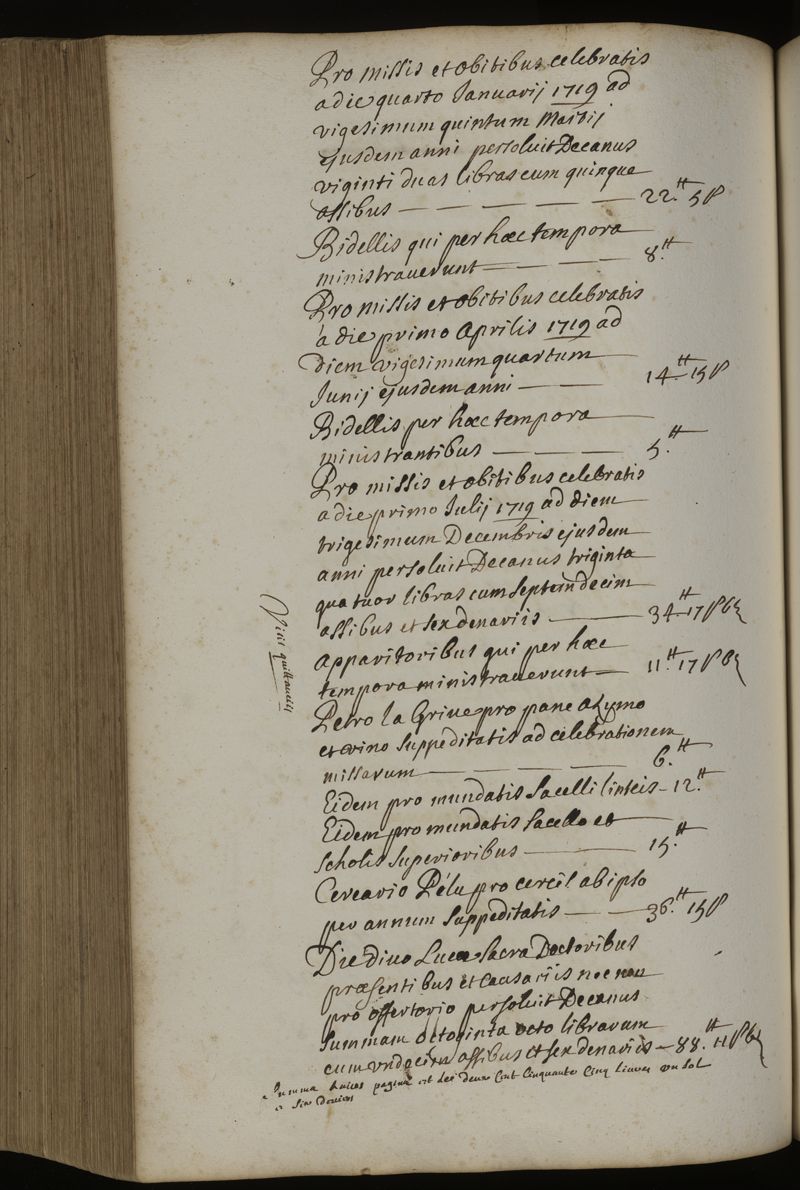 Pro missis et obitibus celebratis
a die quarto Januarij 1719 ad
vigesimum quintum Martij
ejusdem anni persoluit Decanus
viginti duas libras cum quinque
assibus — 22.tt 5 s
Bidellis qui per hæc tempora
ministrauerunt — 8.tt
Pro missis et obitibus celebratis
a die primo Aprilis 1719 ad
diem vigesimum quartum
Junij ejusdem anni — 14.tt 15 s
Bidellis per hæc tempora
ministrantibus — 5.tt
Pro missis et obitibus celebratis
a die primo Julij 1719 ad diem
trigesimum Decembris ejusdem
anni persoluit Decanus triginta
quatuor libras cum septemdecim
assibus et sex denariis — 34.tt 17 s 6 d
Visis quittanciis
Apparitoribus qui per hæc
tempora ministrauerunt — 11.tt 17 s 8 d
Petro la Griue pro pane azymo
et vino suppeditatis ad celebrationem
missarum — 6.tt
Eidem pro mundatis sacelli linteis — 12.tt
Eidem pro mundatis sacello et
scholis superioribus — 15.tt
Cereario Pélu pro cereis ab ipso
per annum suppeditatis — 36.tt 15 s
Die diuo Lucæ sacra Doctoribus
præsentibus et causariis nec non
pro offertorio persoluit Decanus
summam octoginta octo librarum
cum undecim assibus et sex denariis — 88.tt 11 s 6 d
Summa huius paginæ est de deux Cent Cinquante Cinq Liures un sol
et six deniers